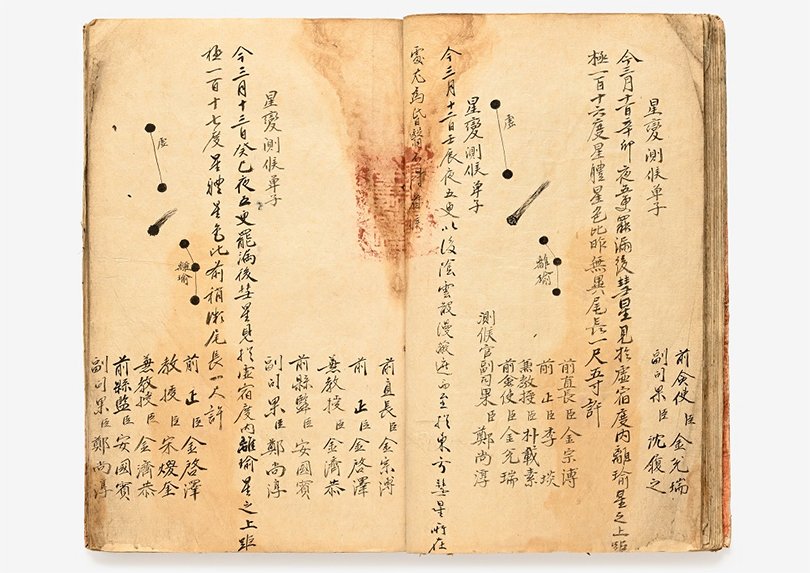 前僉使臣金兌瑞
副司果臣沈履之
星變測候單子
今三月十一日辛卯夜五更罷漏後彗星見於虛宿度內離瑜星之上距
極一百十六度星體星色比昨無異尾長一尺五寸許
虛
離瑜
前直長臣金宗溥
前正臣李琰
兼教授臣朴載素
前僉使臣金兌瑞
測候官副司果臣鄭尚淳
星變測候單子
今三月十二日壬辰夜五更以後陰雲
漫蔽遮而至於東方彗星所在
處尤為昏翳不得
前直長臣金宗溥
前正臣金啓澤
兼教授臣金濟恭
前縣監臣安國賓
副司果臣鄭尚淳
星變測候單子
今三月十三日癸巳夜五更罷漏後彗星見於虛宿度內離瑜星之上距
極一百十七度星體星色比前稍微尾長一尺許
虛
離瑜
前正臣金啓澤
教授臣宋
兼教授臣金濟恭
前縣監臣安國賓
副司果臣鄭尚淳